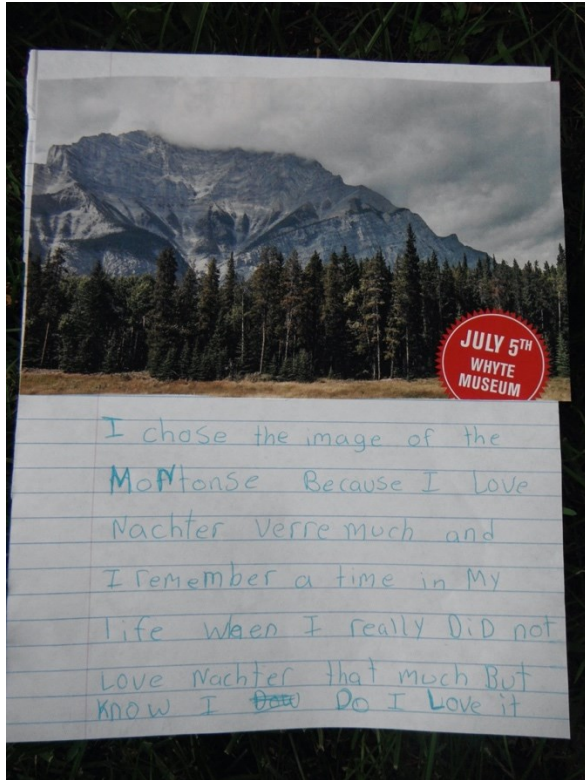 JULY 5TH
WHYTE
MUSEUM
I chose the image of the
MoNtonse Because I Love
Nachter Verre much and
I remember a time in My
life when I really DiD not
Love Nachter that much But
Know I Do I Love it